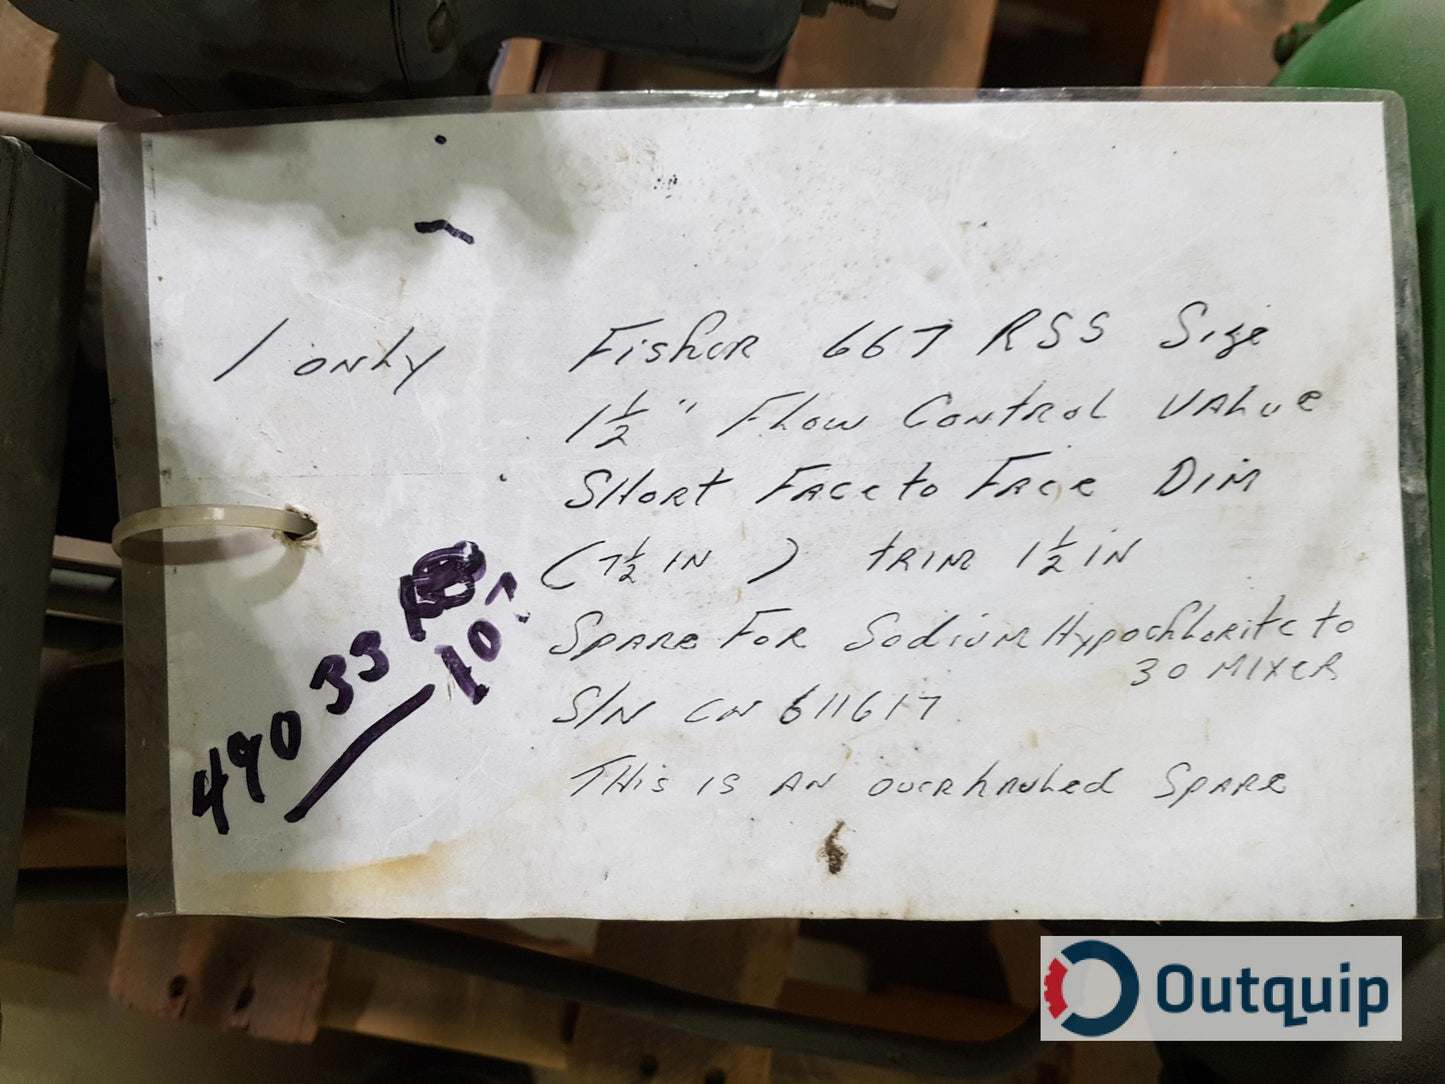 1 only Fisher 667 RSS Size
1½" Flow Control Valve
Short Face to Face Dim
(7½ IN) trim 1½ IN
Spare For Sodium Hypochlorite to
30 Mixer
S/N CN 611617
This is an overhauled Spare
490 33
10
Outquip